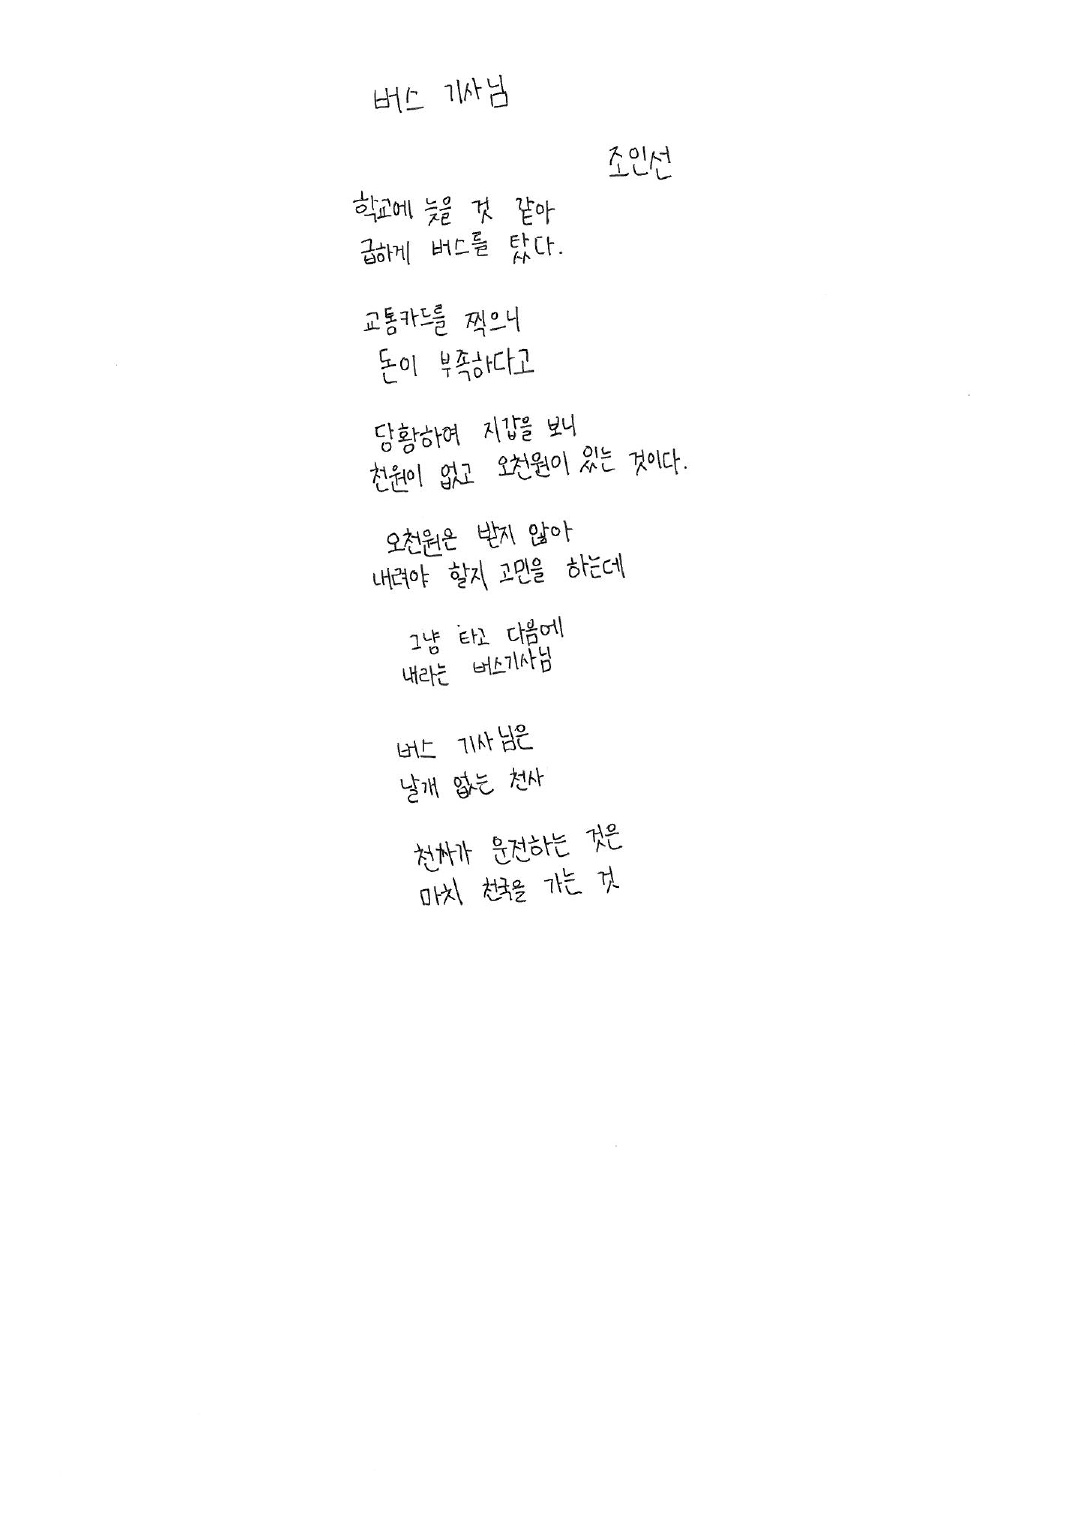 버스 기사님
조인선
학교에 늦을 것 같아
급하게 버스를 탔다.
교통카드를 찍으니
돈이 부족하다고
당황하여 지갑을 보니
천원이 없고 오천원이 있는 것이다.
오천원은 받지 않아
내려야 할지 고민을 하는데
그냥 타고 다음에
내라는 버스기사님
버스 기사님은
날개 없는 천사
천사가 운전하는 것은
마치 천국을 가는 것